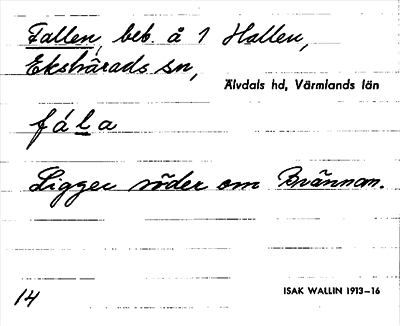 Fallen, beb. å 1 Hallen,
Ekshärads sn,
Älvdals hd, Värmlands län
fála
Ligger söder om Brännan.
14 ISAK WALLIN 1913–16